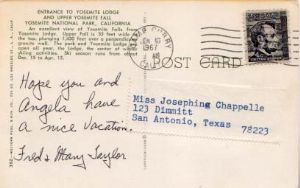 ENTRANCE TO YOSEMITE LODGE
AND UPPER YOSEMITE FALL
YOSEMITE NATIONAL PARK, CALIFORNIA
An excellent view of Yosemite Falls from
Yosemite Lodge. Upper Fall is 30 feet wide at
the top, plunging 1,430 feet over a perpendicular
granite wall. The park and Yosemite Lodge are
open all year, the Lodge, the center of winter
activities. Ski season runs from about
Dec. 15 to Apr. 15.
1967
POST CARD
Hope you and
Angela have
a nice vacation.
Fred & Mary Taylor
Miss Josephing Chappelle
123 Dimmitt
San Antonio, Texas
78223